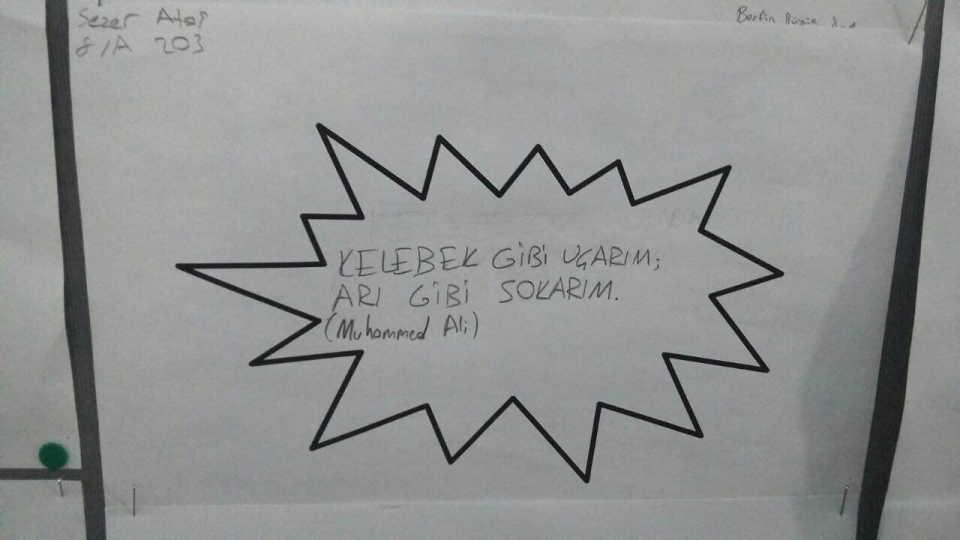 Sezer Ataş
8/A 203
KELEBEK GİBİ UÇARIM;
ARI GİBİ SOKARIM.
(Muhammed Ali)